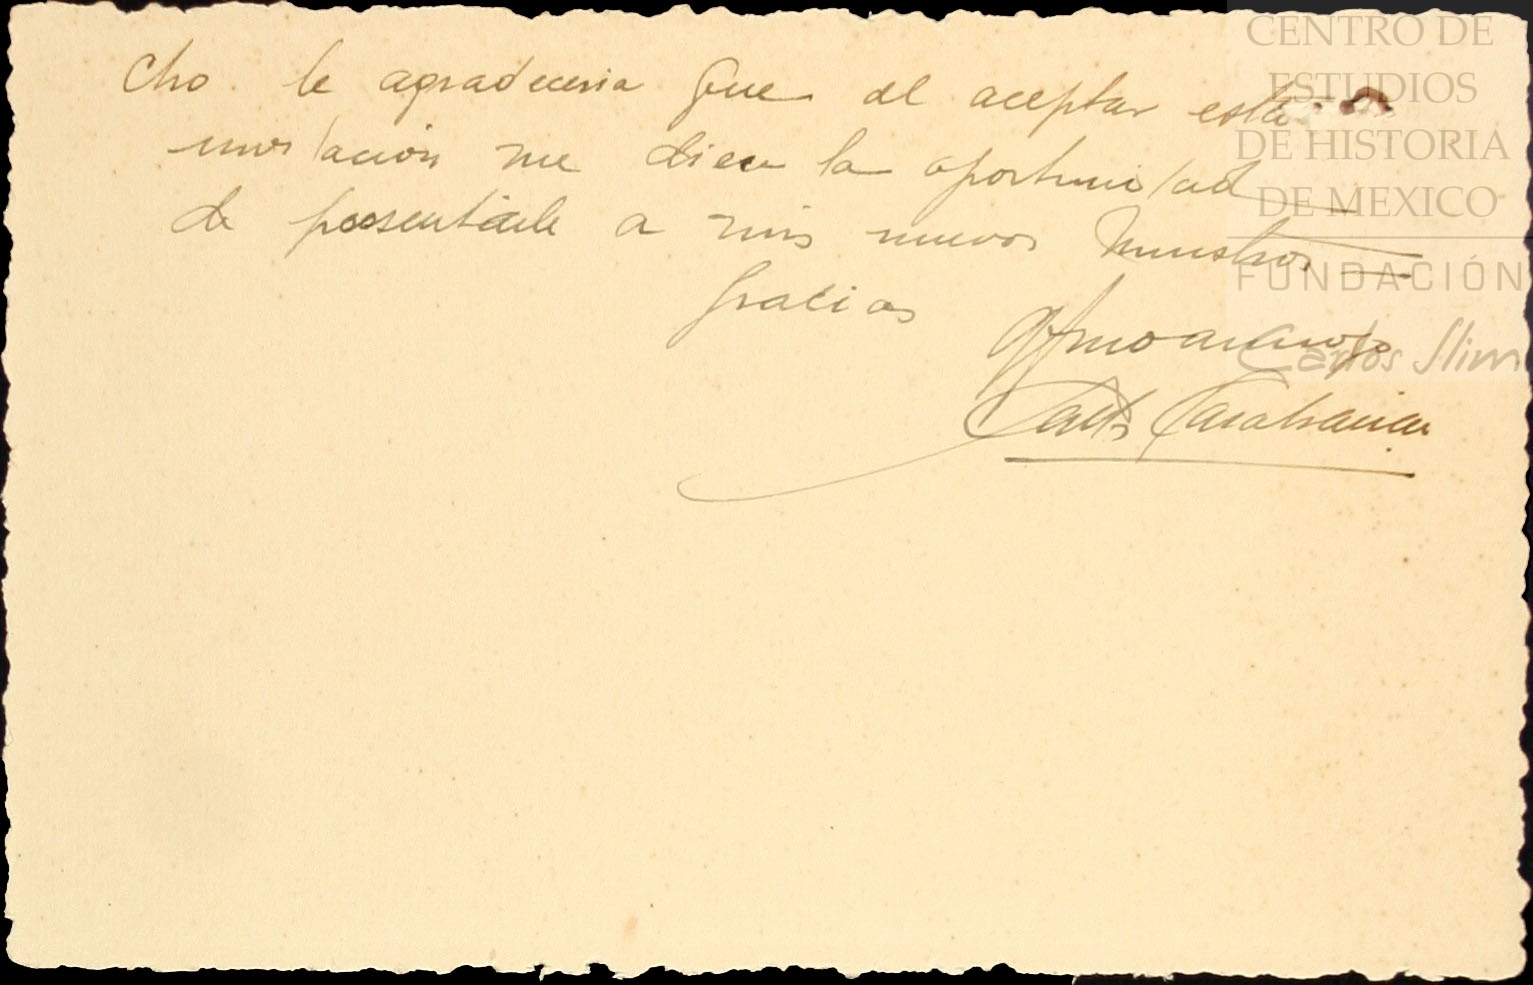 cho le agradeceria que al aceptar esta
invitación me diera la oportunidad
de presentarle a mis nuevos Ministros
Gracias
CENTRO DE
ESTUDIOS
DE HISTORIA
DE MEXICO
FUNDACIÓN
Carlos Slim